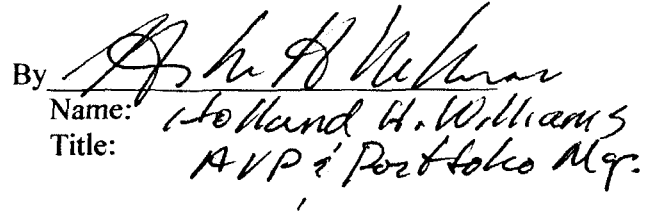 By
Name: Holland H. Williams
Title: AVP & Portfolio Mgr.